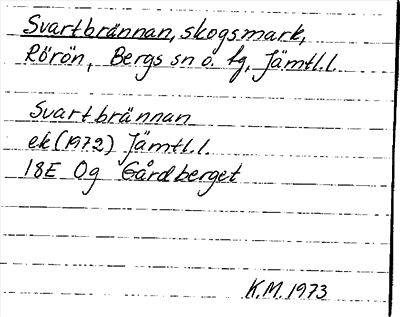 Svartbrännan, skogsmark,
Rörön, Bergs sn o. tg, Jämtl.l.
Svartbrännan
ek (1972) Jämtl.l.
18E 0g Gårdberget
K.M. 1973